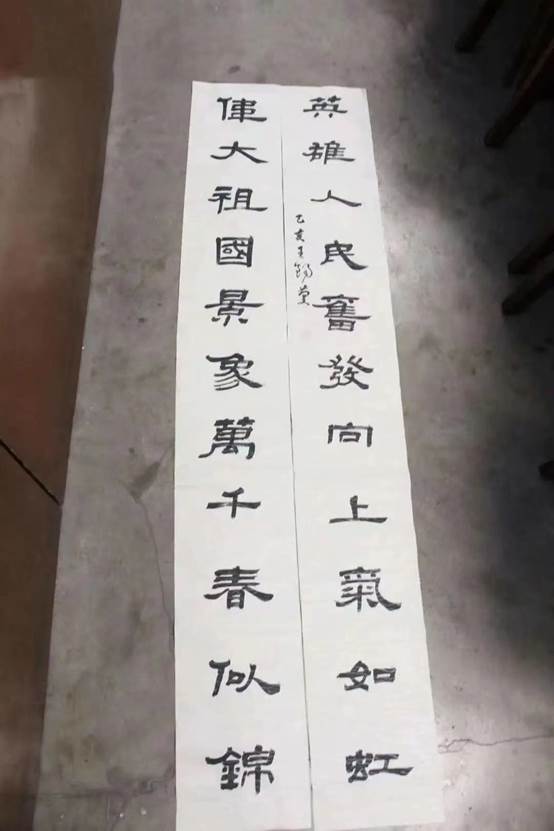 英雄人民奮發向上氣如虹
乙亥王錫蘭
偉大祖國景象萬千春似錦